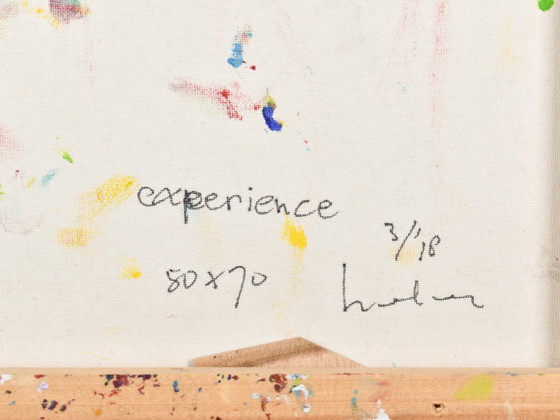 experience
3/'18
50x70